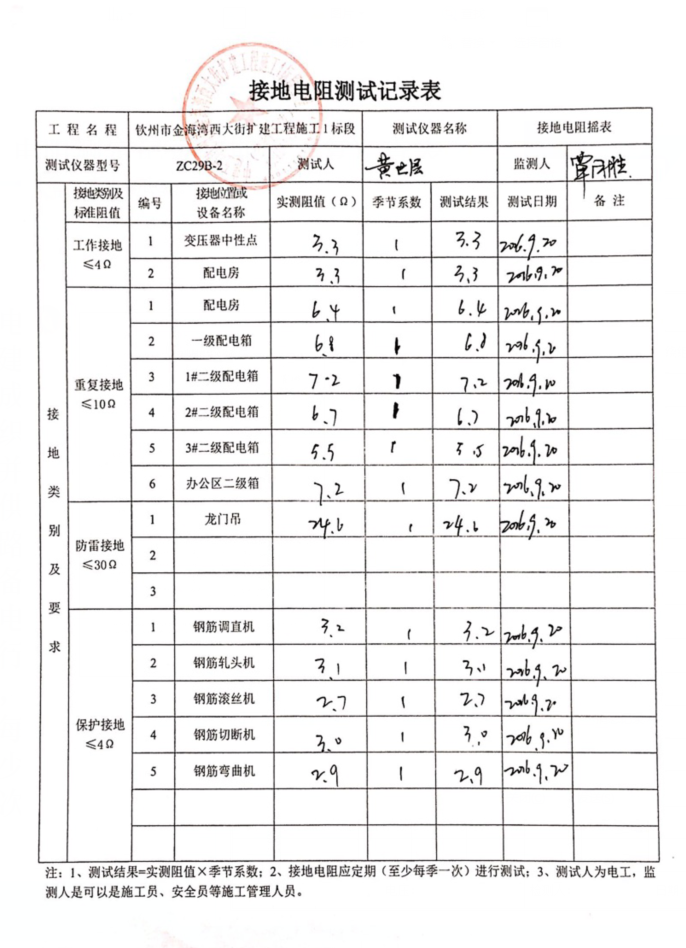 接地电阻测试记录表
工程名称 钦州市金海湾西大街扩建工程施工1标段 测试仪器名称 接地电阻摇表
测试仪器型号 ZC29B-2 测试人 监测人
接地类别及要求
接地类别及标准阻值 编号 接地位置或设备名称 实测阻值(Ω) 季节系数 测试结果 测试日期 备注
工作接地 ≤4Ω
1 变压器中性点 3.3 1 3.3 2016.9.20
2 配电房 3.3 1 3.3 2016.9.20
重复接地 ≤10Ω
1 配电房 6.4 1 6.4 2016.9.20
2 一级配电箱 6.8 1 6.8 2016.9.20
3 1#二级配电箱 7.2 1 7.2 2016.9.20
4 2#二级配电箱 6.7 1 6.7 2016.9.20
5 3#二级配电箱 5.5 1 5.5 2016.9.20
6 办公区二级箱 7.2 1 7.2 2016.9.20
防雷接地 ≤30Ω
1 龙门吊 24.6 1 24.6 2016.9.20
2
3
保护接地 ≤4Ω
1 钢筋调直机 3.2 1 3.2 2016.9.20
2 钢筋轧头机 3.1 1 3.1 2016.9.20
3 钢筋滚丝机 2.7 1 2.7 2016.9.20
4 钢筋切断机 3.0 1 3.0 2016.9.20
5 钢筋弯曲机 2.9 1 2.9 2016.9.20
注:1、测试结果=实测阻值×季节系数;2、接地电阻应定期(至少每季一次)进行测试;3、测试人为电工,监
测人是可以是施工员、安全员等施工管理人员。